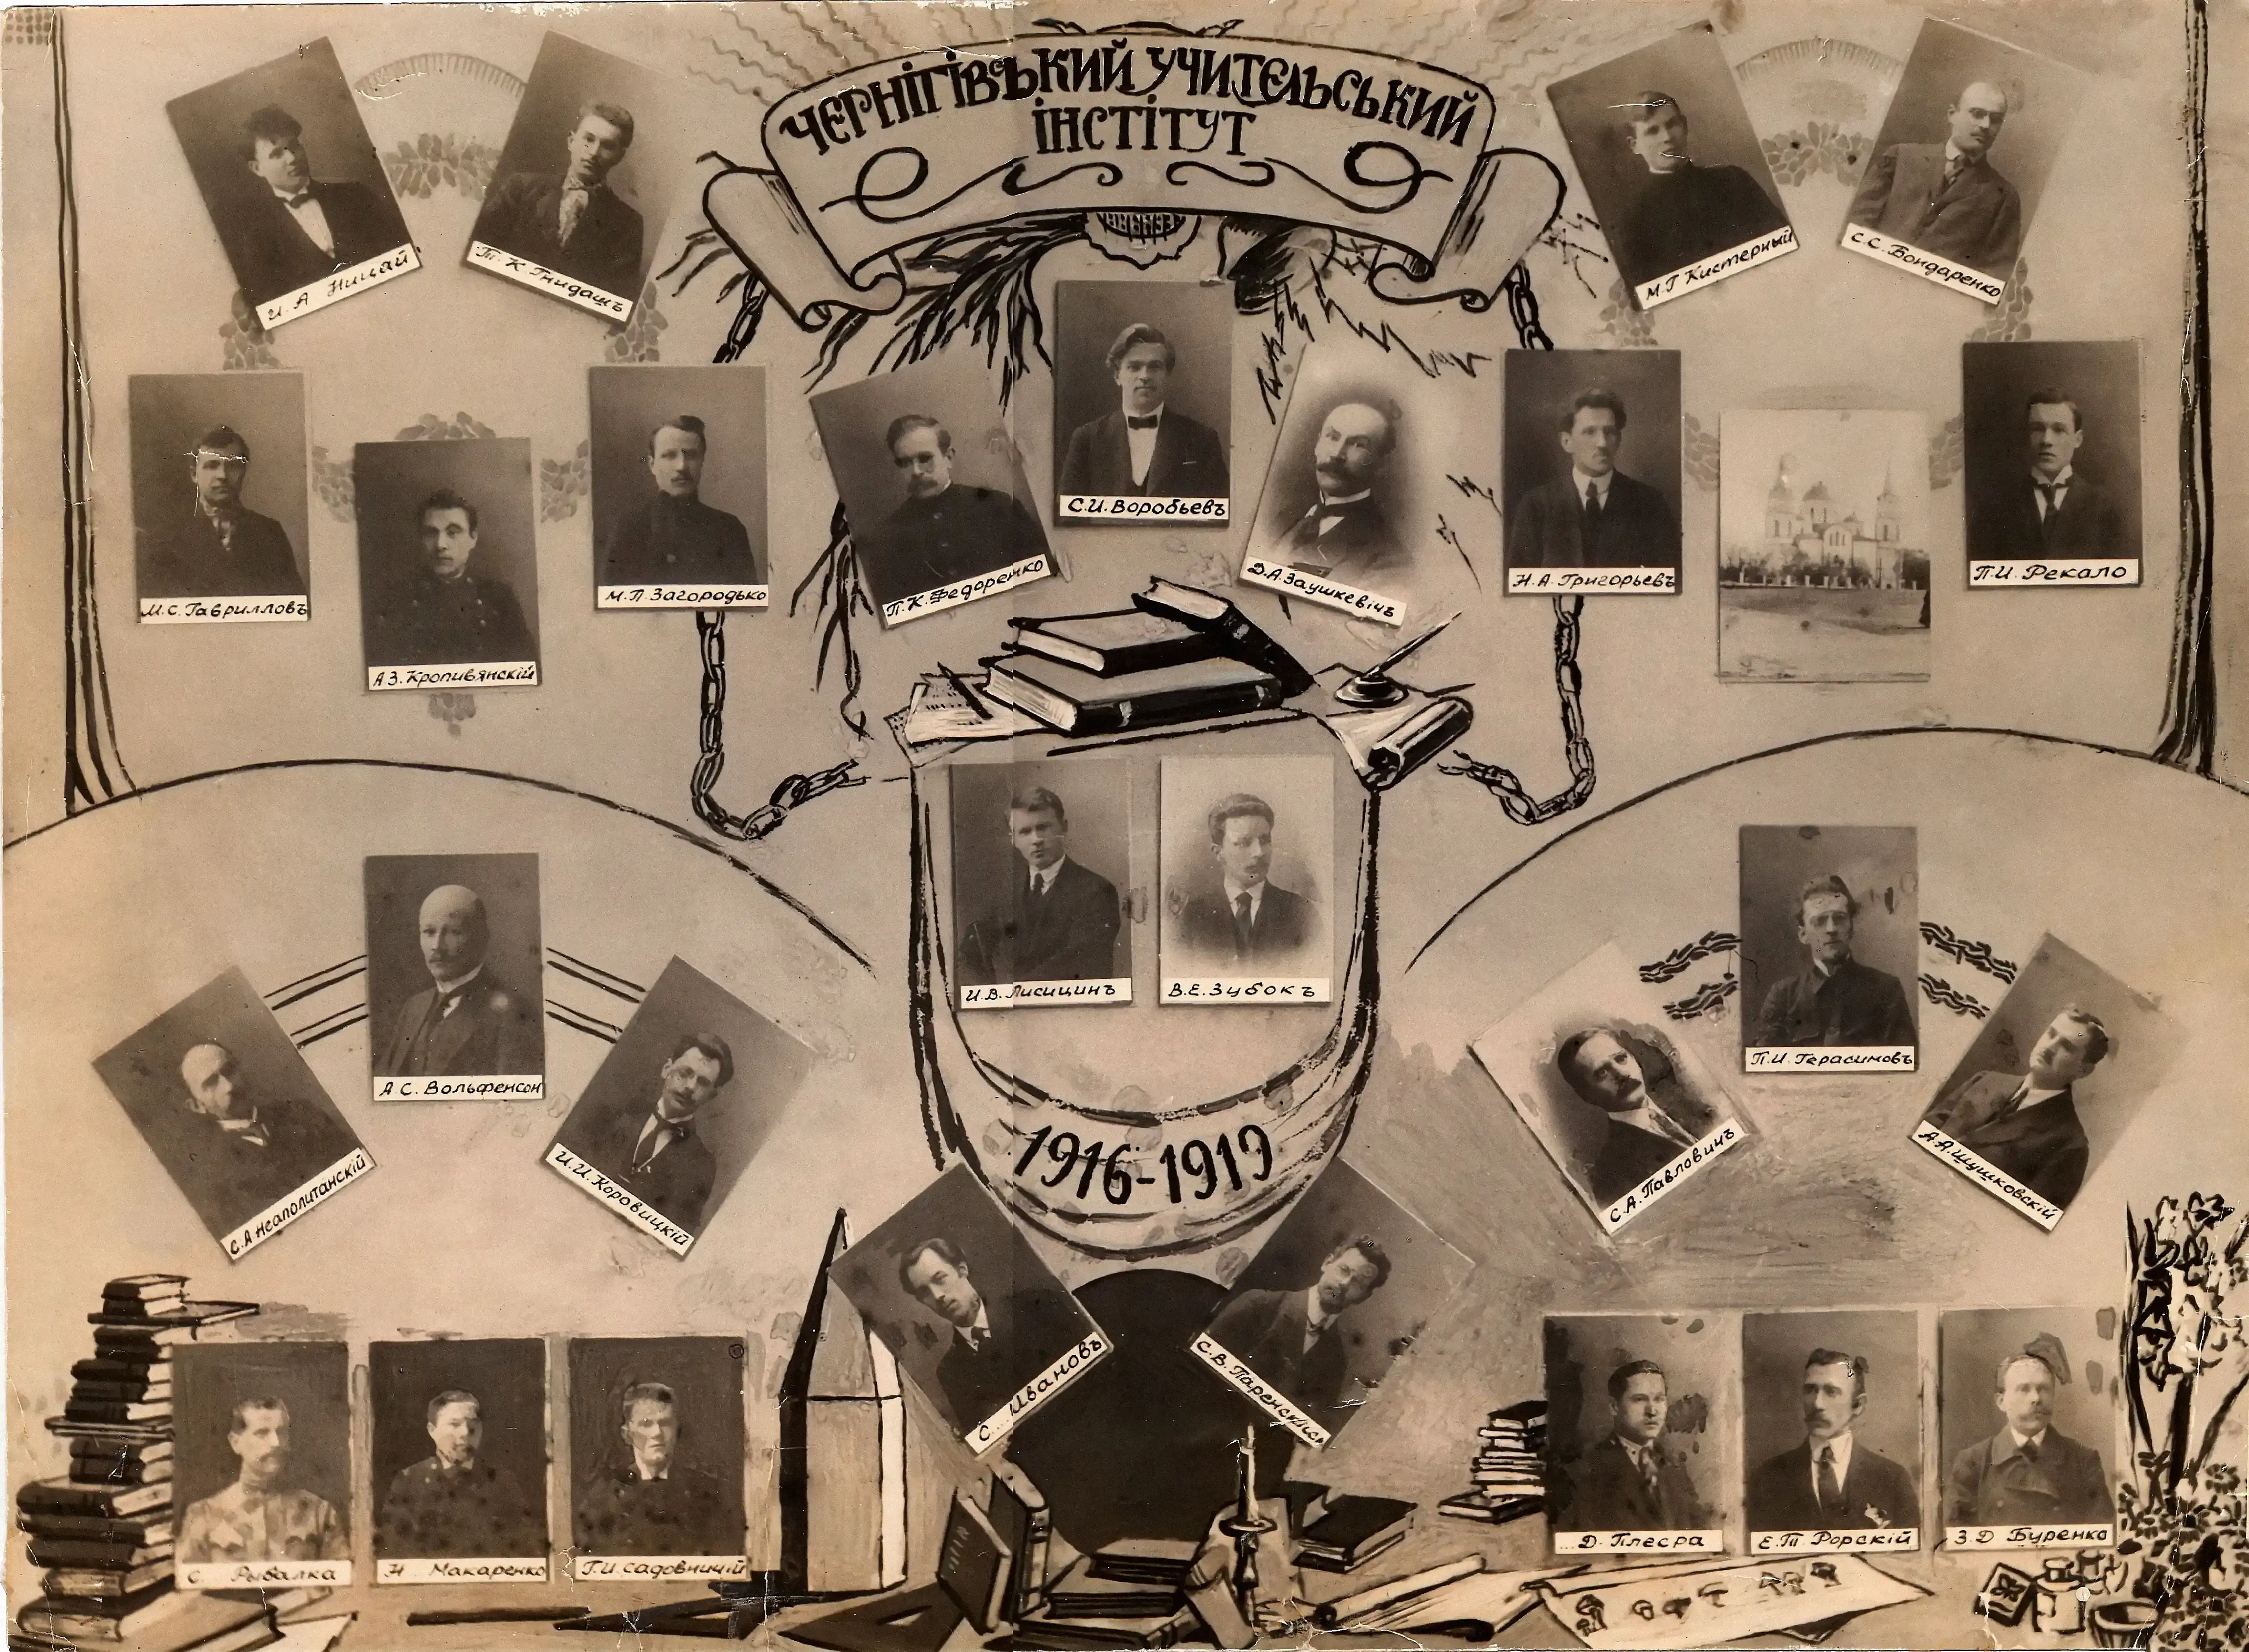 ЧЕРНІГІВСЬКИЙ УЧИТЕЛЬСЬКИЙ
ІНСТІТУТ
И. А Ницай
Т. К. Гнидашъ
М. Г Кистерный
С. С. Бондаренко
М. С. Гаврилловъ
А З. Кропивянскій
М. П. Загородько
П. К. Федоренко
С. И. Воробьевъ
Д. А. Заушкевічъ
Н. А. Григорьевъ
П. И. Рекало
И. В. Лисицинъ
В. Е. Зубокъ
С. А Неаполитанскій
А С. Вольфенсон
И. И. Коровицкій
С. А. Павловичъ
П. И. Герасимовъ
А. А. Шушковскій
1916-1919
С... Ивановъ
С. В. Паренскі
С. Рыбалка
Н Макаренко
Г. И. Садовницій
...Д. Плесра
Е. Т Рорскій
З. Д Буренко